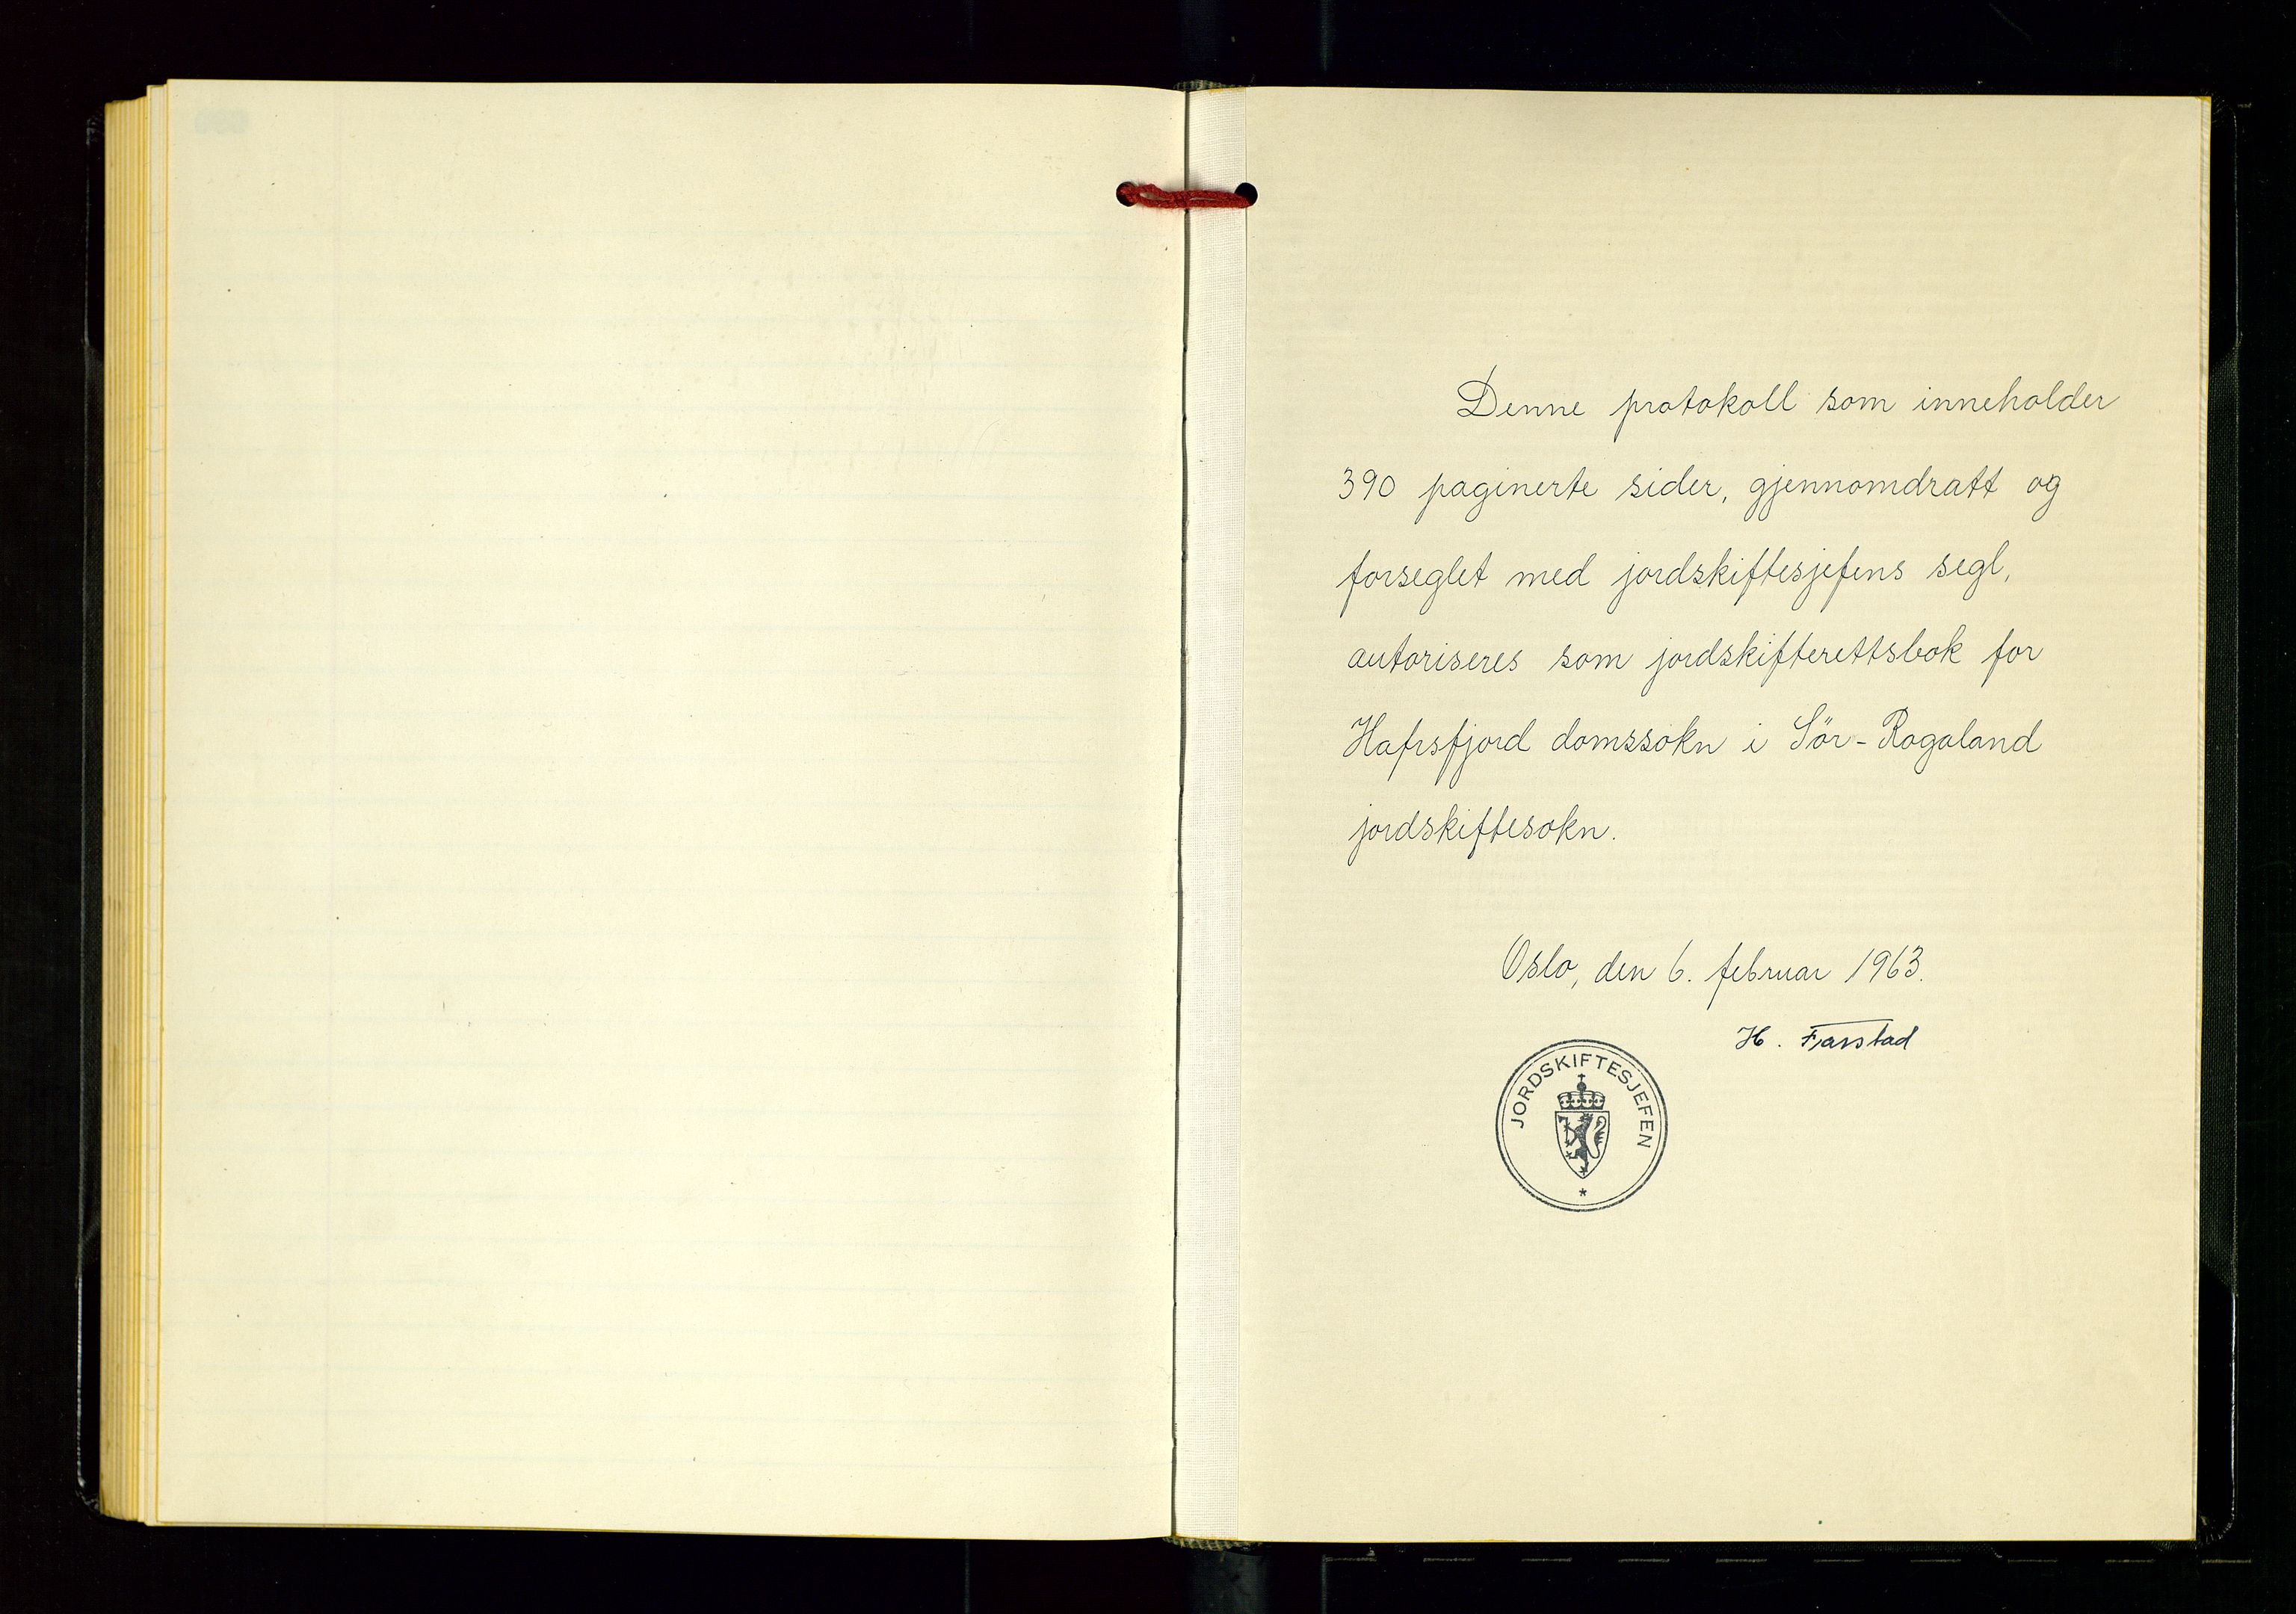 Denne protokoll som inneholder
390 paginerte sider, gjennomdratt og
forseglet med jordskiftesjefens segl,
autoriseres som jordskifterettsbok for
Hafrsfjord domssokn i Sör-Rogaland
jordskiftesokn.
Oslo, den 6. februar 1963.
H. Farstad
JORDSKIFTESJEFEN
*